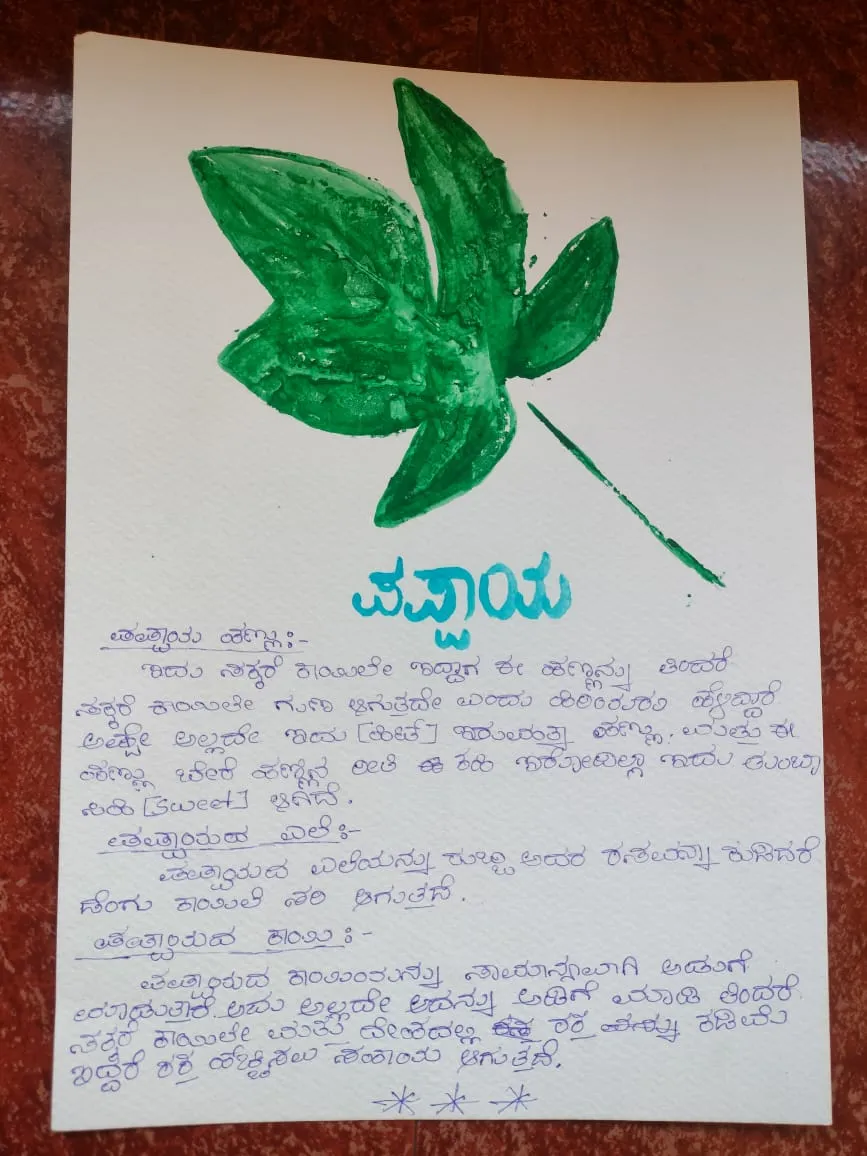 ಪಪ್ಪಾಯ
ಪಪ್ಪಾಯ ಹಣ್ಣು:-
ಇದು ಸಕ್ಕರೆ ಕಾಯಿಲೇ ಇದ್ದಾಗ ಈ ಹಣ್ಣನ್ನು ತಿಂದರೆ
ಸಕ್ಕರೆ ಕಾಯಿಲೇ ಗುಣ ಆಗುತ್ತದೇ ಎಂದು ಹಿರಿಯರು ಹೇಳಿದ್ದಾರೆ
ಅಷ್ಟೇ ಅಲ್ಲದೇ ಇದು [ಹೀಟ್] ಇರುವಂತಾ ಹಣ್ಣು. ಮತ್ತು ಈ
ಹಣ್ಣು ಬೇರೆ ಹಣ್ಣಿನ ರೀತಿ ಕಹಿ ಇರೋದಿಲ್ಲಾ ಇದು ತುಂಬಾ
ಸಿಹಿ [Sweet] ಆಗಿದೆ.
ಪಪ್ಪಾಯದ ಎಲೆ:-
ಪಪ್ಪಾಯದ ಎಲೆಯನ್ನು ರುಬ್ಬಿ ಅದರ ರಸವನ್ನು ಕುಡಿದರೆ
ಡೆಂಗು ಕಾಯಿಲೆ ಸರಿ ಆಗುತ್ತದೆ.
ಪಪ್ಪಾಯದ ಕಾಯಿ:-
ಪಪ್ಪಾಯದ ಕಾಯಿಯನ್ನು ಸಾಮಾನ್ಯವಾಗಿ ಅಡುಗೆ
ಮಾಡುತ್ತಾರೆ ಅದು ಅಲ್ಲದೇ ಅದನ್ನು ಅಡಿಗೆ ಮಾಡಿ ತಿಂದರೆ
ಸಕ್ಕರೆ ಕಾಯಿಲೇ ಮತ್ತು ದೇಹದಲ್ಲಿ ರಕ್ತ ಕಡಿಮೆ
ಇದ್ದರೆ ರಕ್ತ ಹೆಚ್ಚಿಸಲು ಸಹಾಯ ಆಗುತ್ತದೆ.